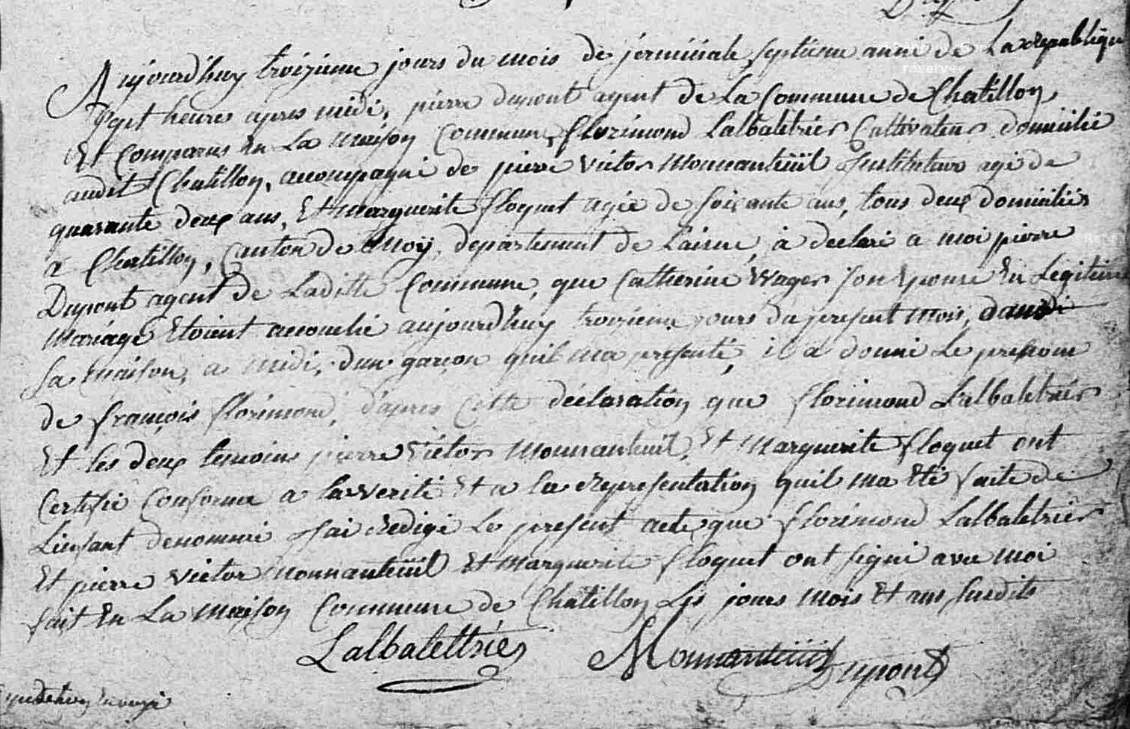 Aujourdhuy troizieme jours du mois de jerminale septieme anné de La republique
sept heures apres midi, pierre dupont agent de La Commune de Chatillon
Et Comparus En La maison Commune, florimond Lalbaletrier Cultivateur domicilié
audit Chatillon, accompagné de pierre victor Monnanteüil Instituteur agé de
quarante deux ans, Et Marguerite floquet agée de soixante ans, tous deux domiciliés
a Chatillon, Canton de Moÿ, departement de Laisne, à declaré a moi pierre
Dupont agent de Laditte Commune, que Catherine Wager son Epouse En Legitime
Mariage Etoient accouché aujourdhuy troizieme jours du present mois, dans
sa maison, a midi, dun garçon quil ma presenté, il a donné Le prenom
de françois florimond, d'apres Cette déclaration que florimond Lalbaletrier
Et les deux temoins pierre victor Monnanteuil, Et Marguerite floquet ont
Certifié Conforme a la verité Et a la representation quil ma Eté faite de
Lenfant denommé jai redigé Le present acte que florimond Lalbaletrier
Et pierre victor Monnanteüil Et Marguerite floquet ont signé avec moi
fait En La maison Commune de Chatillon Les jours mois Et ans susdits
Lalbalettrier Monnanteuil Dupont